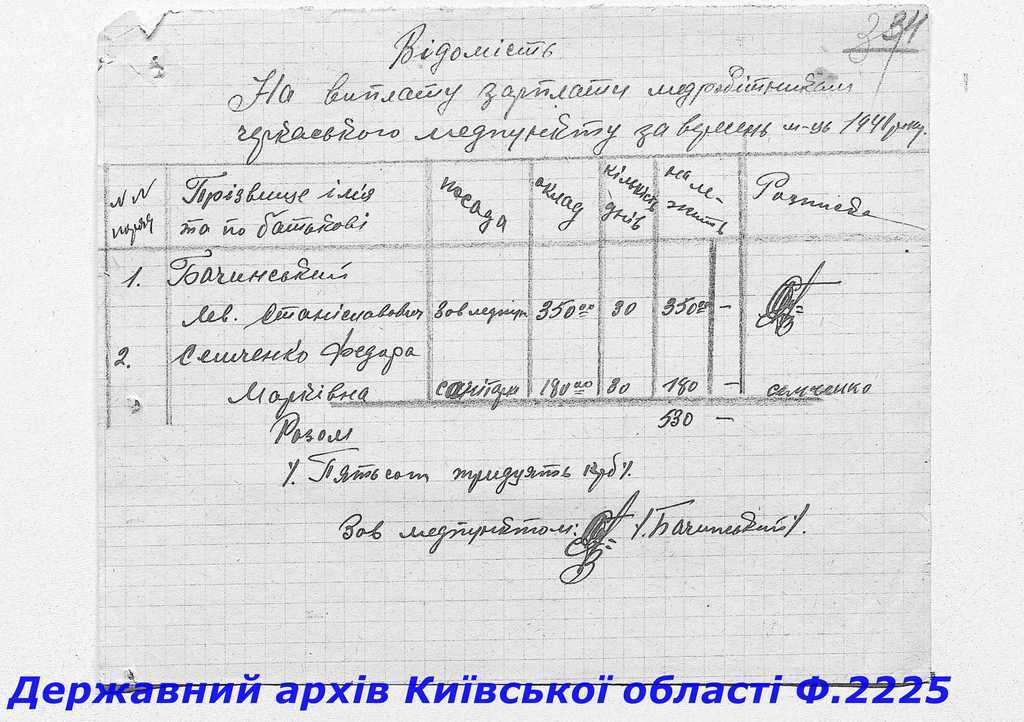 334
Відомість
На виплату зарплати медробітникам
черкаського медпункту за вересень м-ць 1941 року.
NN Прізвище імя посада оклад кількість нале- Розписка
та по батькові днів жить
1. Бачинський
Лев. Станіславович Зав медпун 350 00 30 350 00 -
2. Семченко Федора
Марківна санітарка 180 00 30 180 - семченко
530 -
Разом
/. Пятьсот тридцять крб /.
Зав медпунктом: /.Бачинський/.
Державний архів Київської області Ф.2225